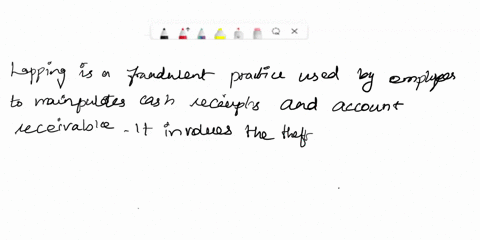 Lapping is a fraudulent practice used by employees
to mainpulates cash receiphs and account
receivable. It involves the theft